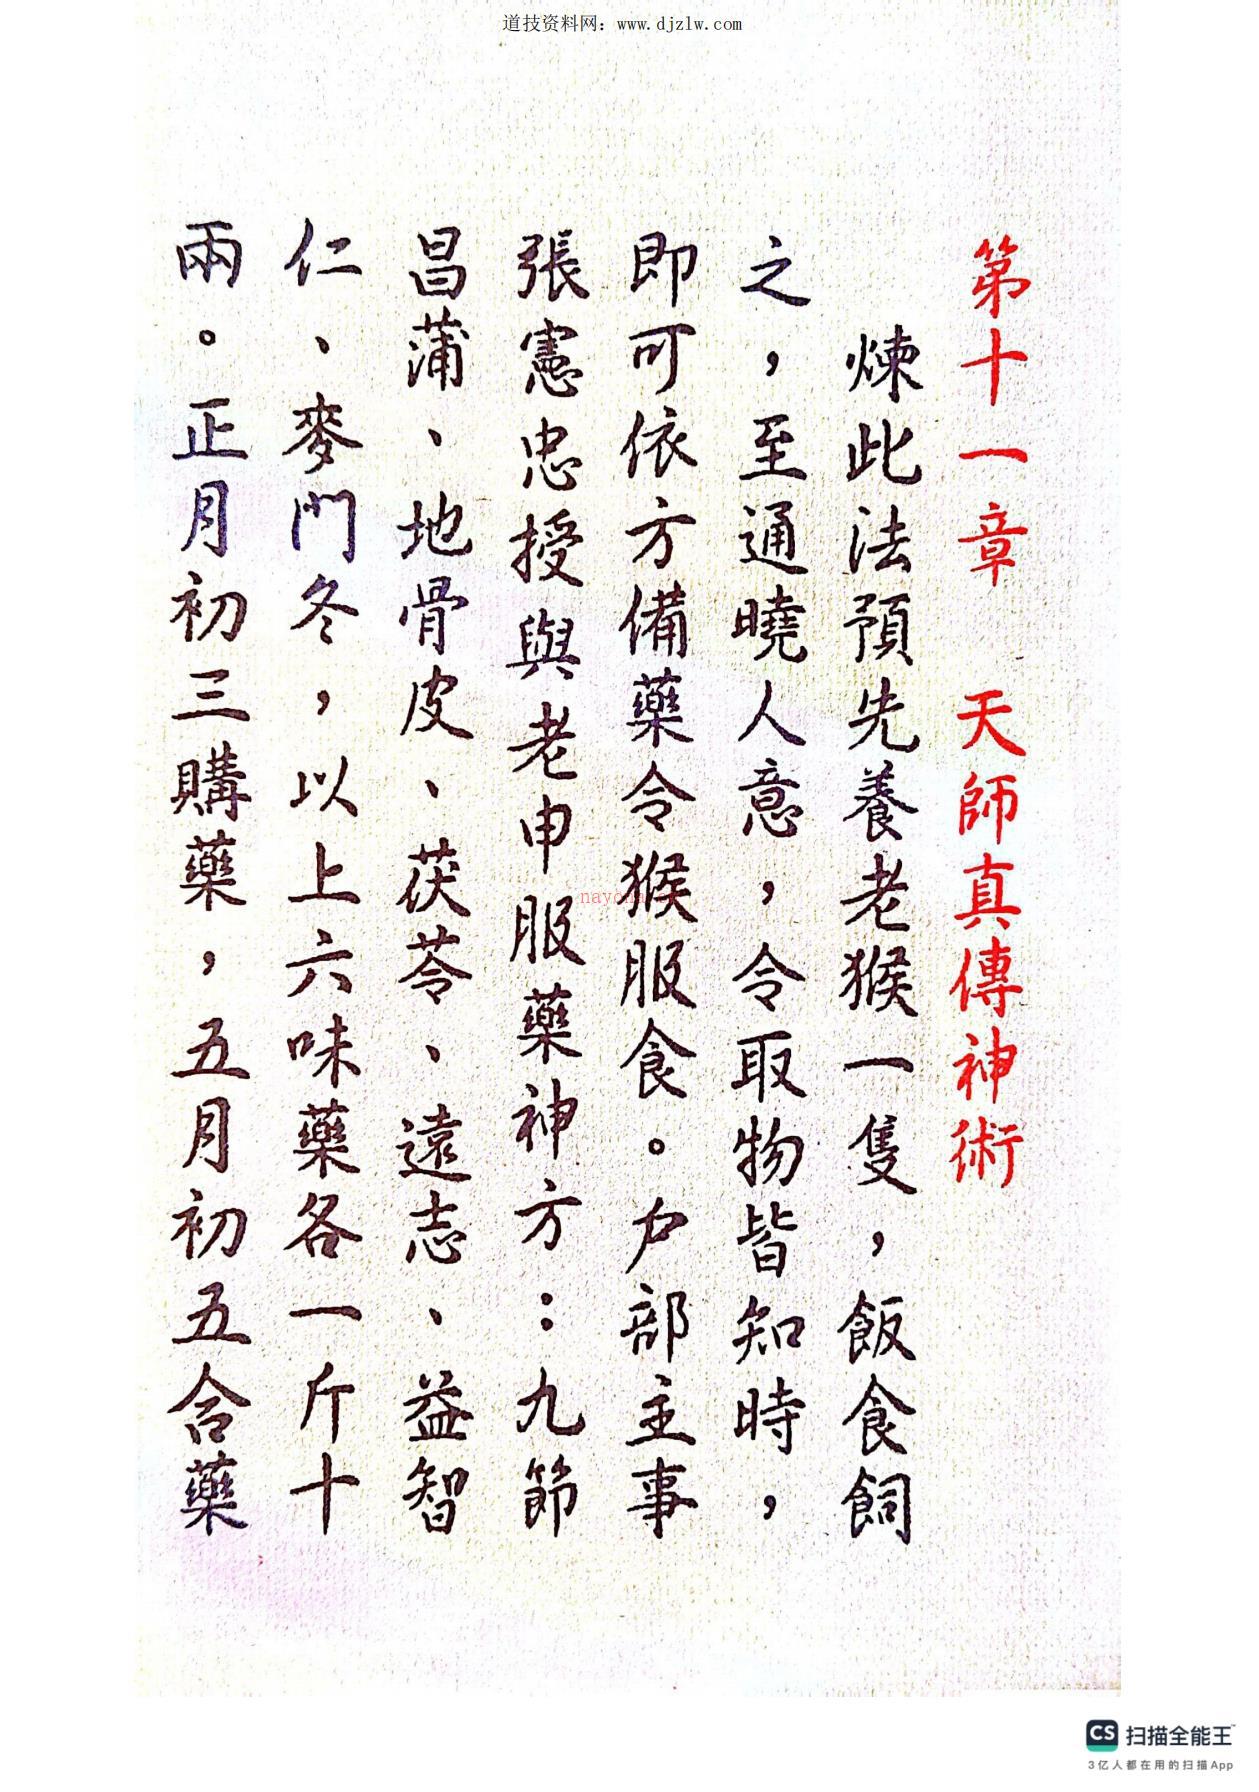 道技资料网：www.djzlw.com
第十一章　天師真傳神術
煉此法預先養老猴一隻，飯食飼
之，至通曉人意，令取物皆知時，
即可依方備藥令猴服食。户部主事
張憲忠授與老申服藥神方：九節
昌蒲、地骨皮、茯苓、遠志、益智
仁、麥門冬，以上六味藥各一斤十
兩。正月初三購藥，五月初五合藥
CS 扫描全能王™
3亿人都在用的扫描App